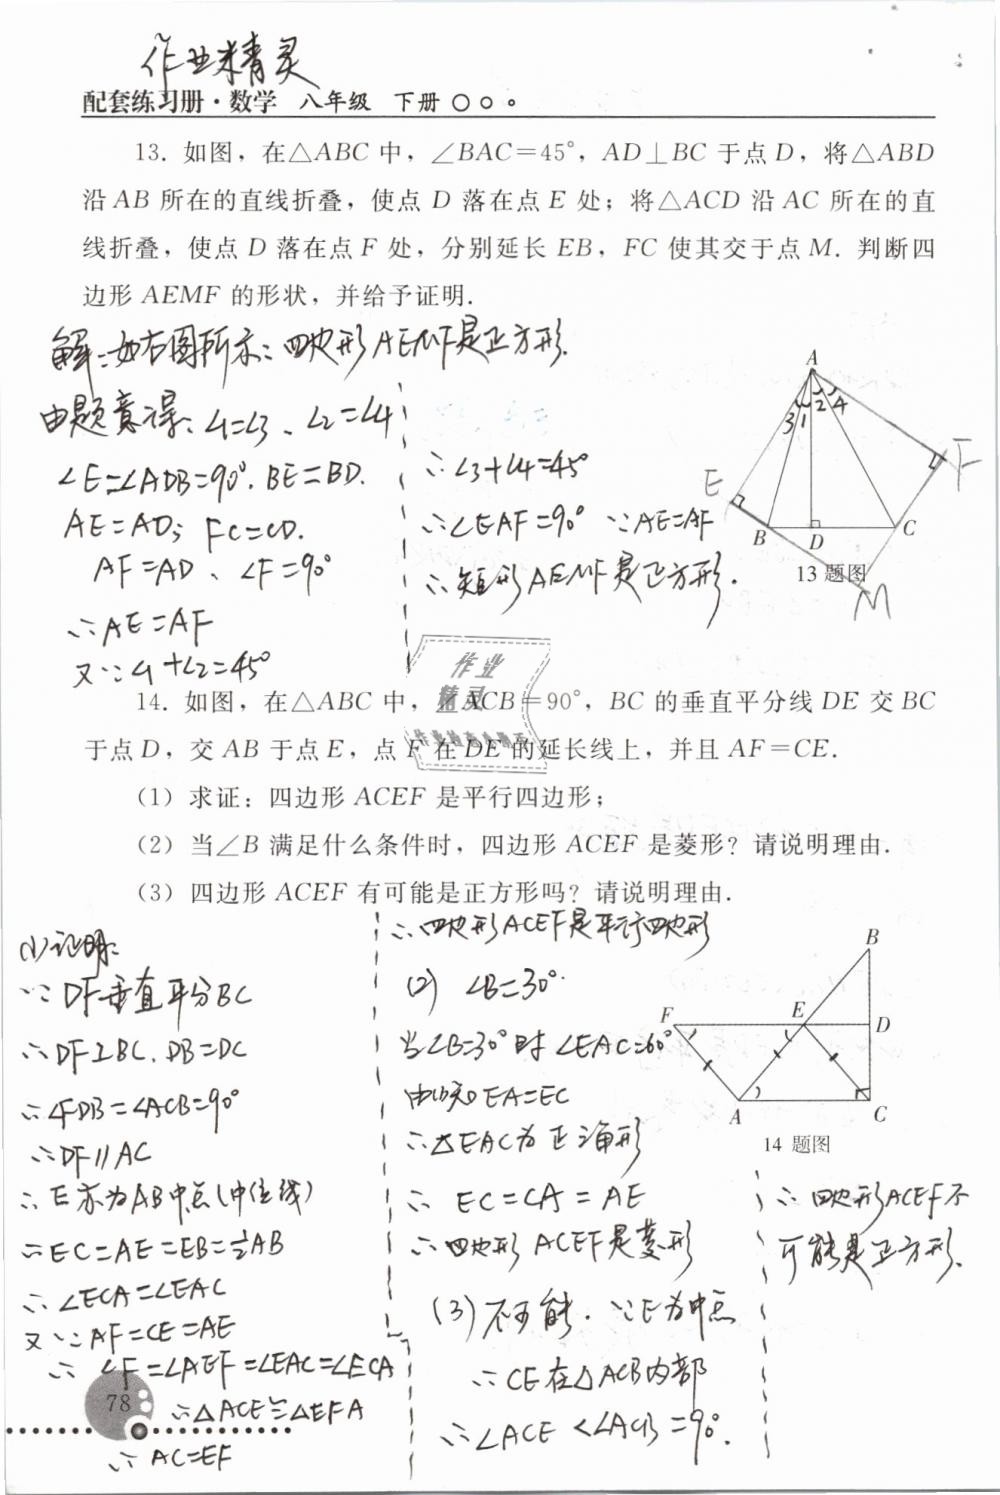 作业精灵
配套练习册·数学 八年级 下册
13. 如图，在△ABC 中，∠BAC=45°，AD⊥BC 于点 D，将△ABD
沿 AB 所在的直线折叠，使点 D 落在点 E 处；将△ACD 沿 AC 所在的直
线折叠，使点 D 落在点 F 处，分别延长 EB，FC 使其交于点 M. 判断四
边形 AEMF 的形状，并给予证明.
解：如右图所示：四边形AEMF是正方形.
由题意得：∠1=∠3、∠2=∠4
∠E=∠ADB=90°. BE=BD.
AE=AD; FC=CD.
AF=AD、∠F=90°
∴AE=AF
又∵∠1+∠2=45°
∴∠3+∠4=45°
∴∠EAF=90° ∵AE=AF
∴矩形AEMF是正方形.
A
3 1 2 4
E
F
B D C
13 题图
M
14. 如图，在△ABC 中，∠ACB=90°，BC 的垂直平分线 DE 交 BC
于点 D，交 AB 于点 E，点 F 在 DE 的延长线上，并且 AF=CE.
作业
精灵
(1) 求证：四边形 ACEF 是平行四边形；
(2) 当∠B 满足什么条件时，四边形 ACEF 是菱形？请说明理由.
(3) 四边形 ACEF 有可能是正方形吗？请说明理由.
(1)证明：
∵DF垂直平分BC
∴DF⊥BC. DB=DC
∴∠FDB=∠ACB=90°
∴DF∥AC
∴E亦为AB中点(中位线)
∴EC=AE=EB=½AB
∴∠ECA=∠EAC
又∵AF=CE=AE
∴∠F=∠AEF=∠EAC=∠ECA
∴△ACE≌△EFA
∴AC=EF
∴四边形ACEF是平行四边形
(2) ∠B=30°.
当∠B=30°时 ∠EAC=60°
由(1)知EA=EC
∴△EAC为正三角形
∴EC=CA=AE
∴四边形ACEF是菱形
(3)不可能. ∵E为中点
∴CE在△ACB内部
∴∠ACE<∠ACB=90°.
B
F E D
A C
14 题图
∴四边形ACEF不
可能是正方形.
78